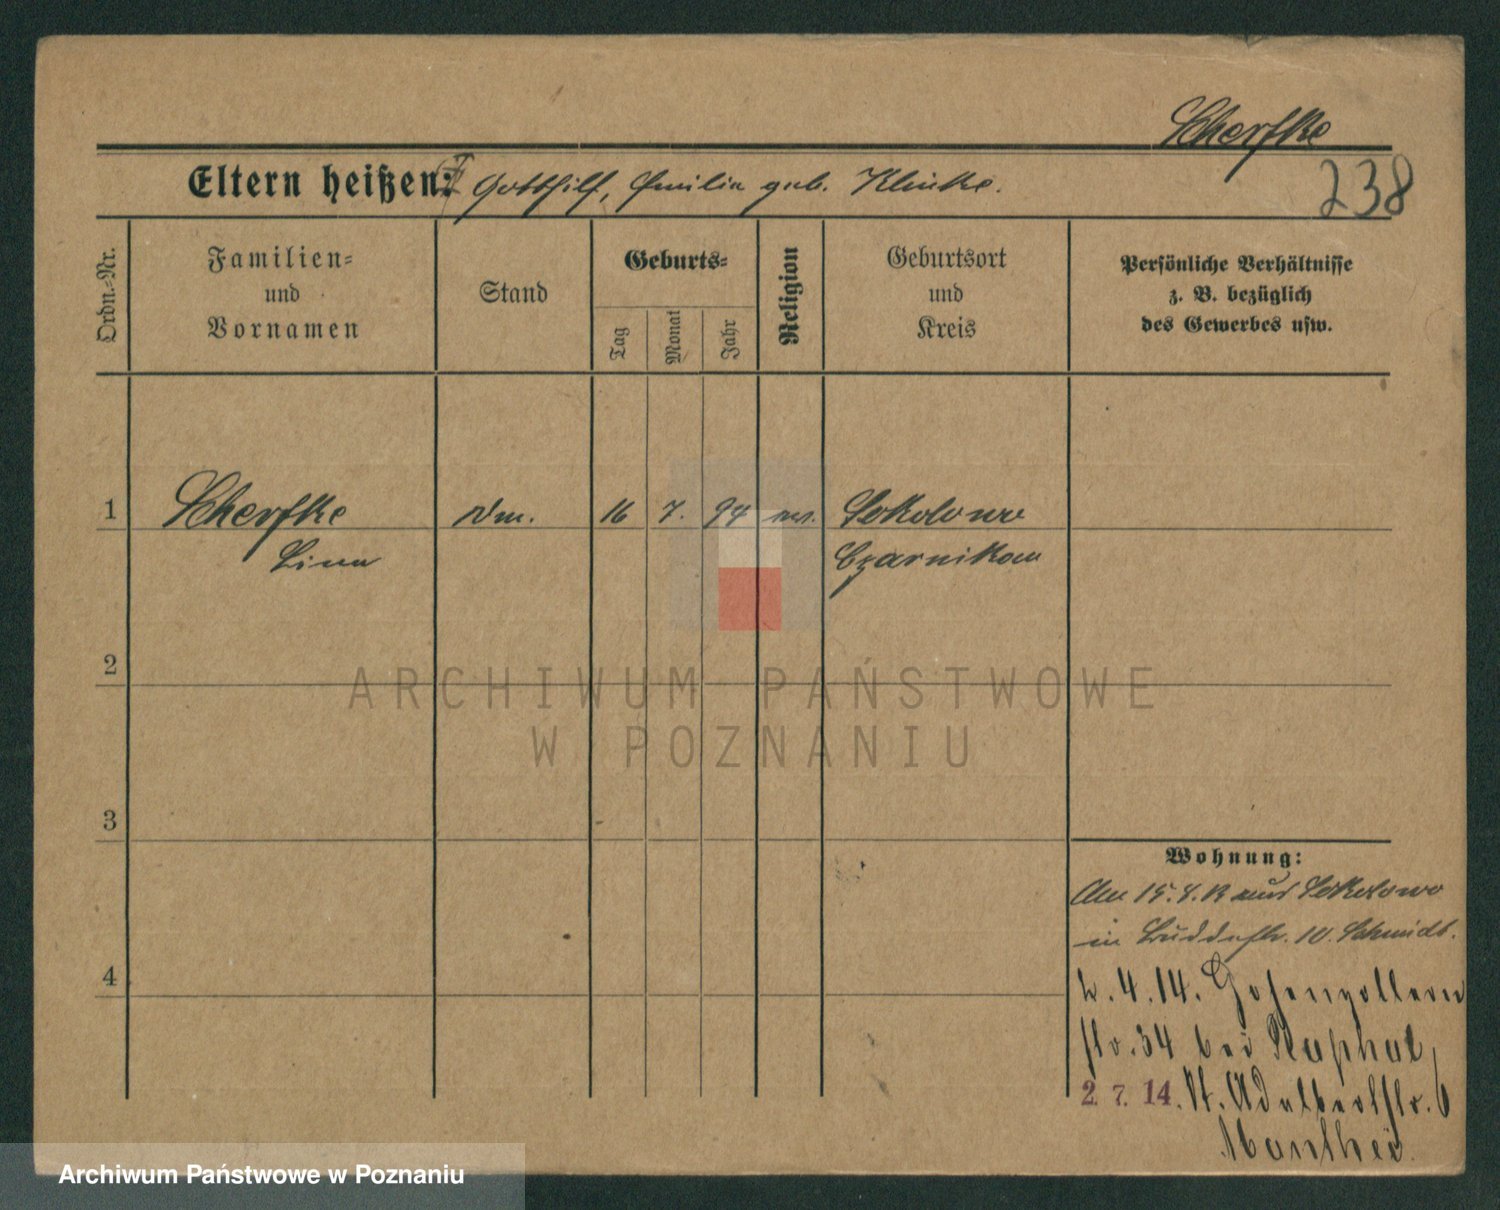 Scherfke
Eltern heißen: Gotthilf, Emilie geb. Klinke.
238
Ordn.-Nr.
Familien- und Vornamen
Stand
Geburts-
Tag
Monat
Jahr
Religion
Geburtsort und Kreis
Persönliche Verhältnisse
z. B. bezüglich
des Gewerbes usw.
1 Scherfke 16 7. 94 Sokolowo
Lina Czarnikau
2
3
4
Wohnung:
aus Sokolowo
in Buddestr. 10. Schmidt.
2.4.14. Hohenzollern
str. 34 bei Raphael
2. 7. 14. St. Adalbertstr. 6
Manthei
ARCHIWUM PAŃSTWOWE
W POZNANIU
Archiwum Państwowe w Poznaniu